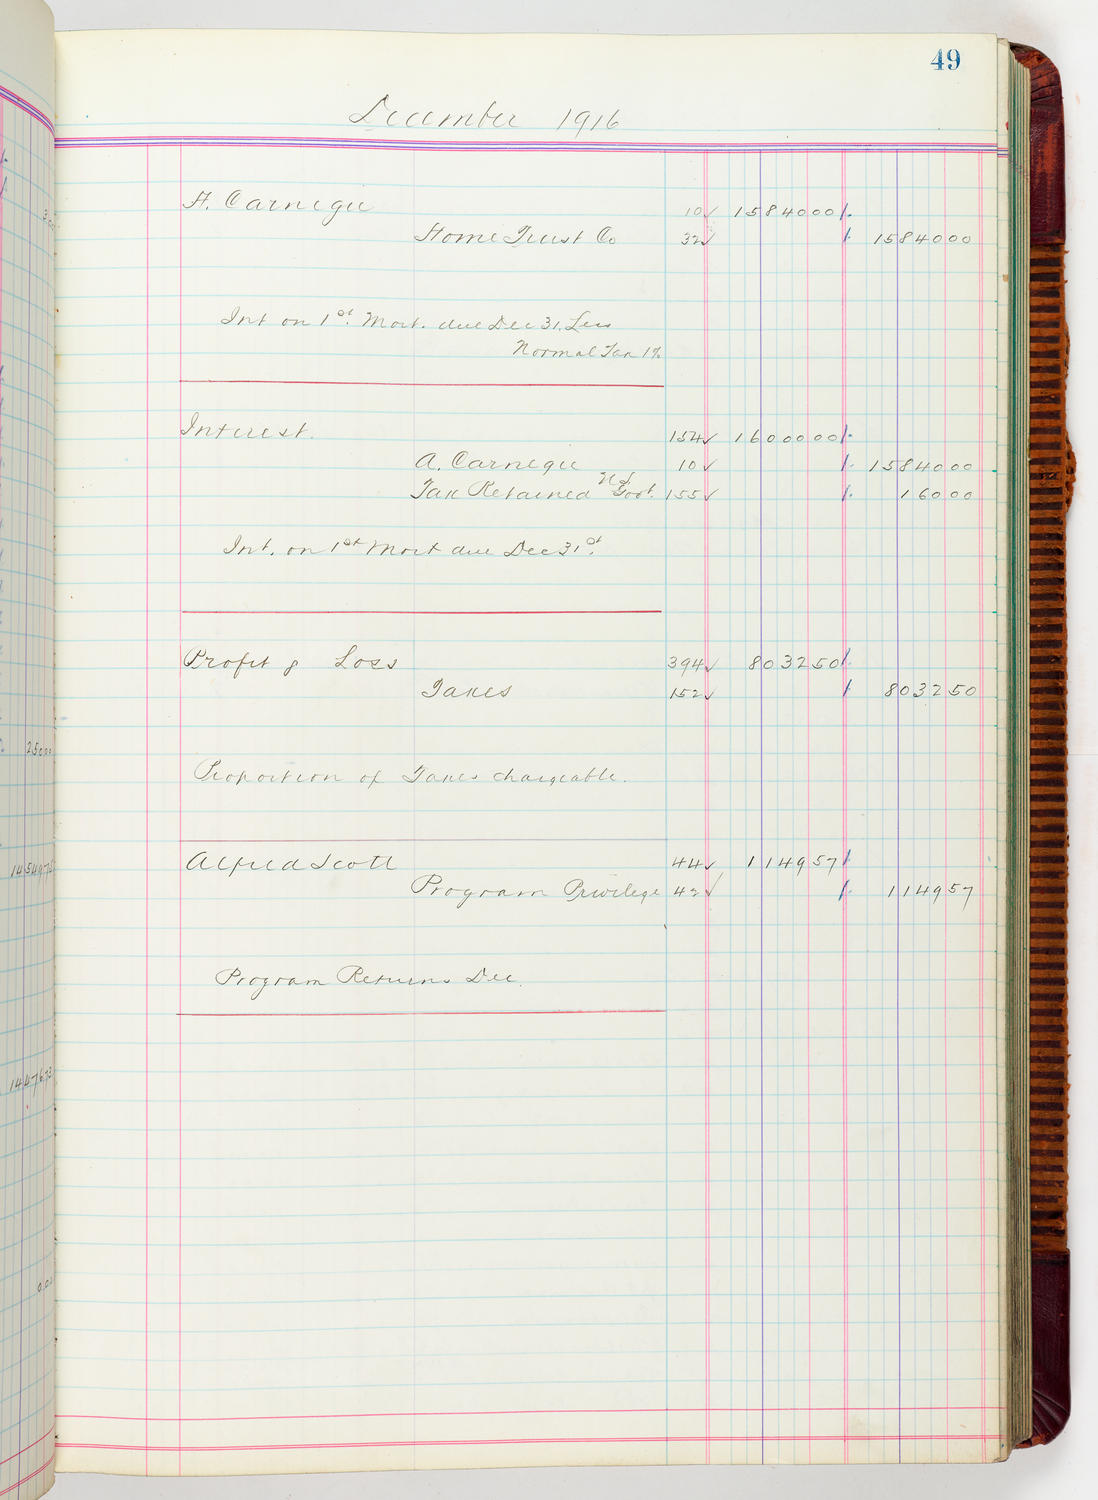 49
December 1916
A. Carnegie 10✓ 1584000
Home Trust Co 32✓ 1584000
Int on 1st. Mort. due Dec 31, Less
Normal Tax 1%
Interest. 154✓ 1600000
A. Carnegie 10✓ 1584000
Tax Retained US Govt. 155✓ 16000
Int. on 1st Mort due Dec 31st.
Profit & Loss 394✓ 803250
Taxes 152✓ 803250
Proportion of Taxes chargeable.
Alfred Scott 44✓ 114957
Program Privilege 42✓ 114957
Program Returns Dec.
2500